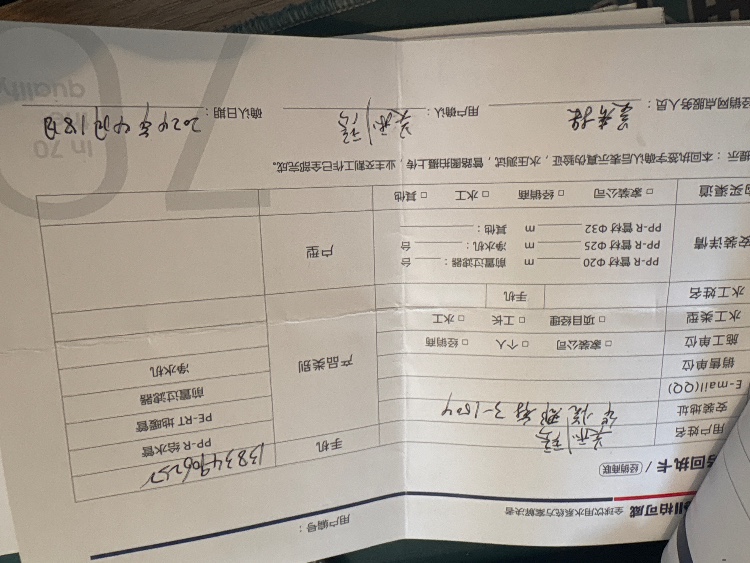 柏可威 全球饮用水系统方案解决者
用户编号：
回执卡 / 经销商联
用户姓名
手机 13834906257
安装地址 3-1504
E-mail(QQ)
销售单位
施工单位 □ 家装公司 □ 个人 □ 经销商
水工类型 □ 项目经理 □ 工长 □ 水工
水工姓名 手机
产品类别
PP-R 给水管
PE-RT 地暖管
前置过滤器
净水机
安装详情
PP-R 管材 Φ20 m 前置过滤器： 台
PP-R 管材 Φ25 m 净水机： 台
PP-R 管材 Φ32 m 其他：
户型
购买渠道 □ 家装公司 □ 经销商 □ 水工 □ 其他
提示：本回执签字确认后表示真伪验证，水压测试，管路图拍摄上传，业主交割工作已全部完成。
经销网点服务人员：
用户确认：
确认日期：2024年4月18日
In 70
quality
70